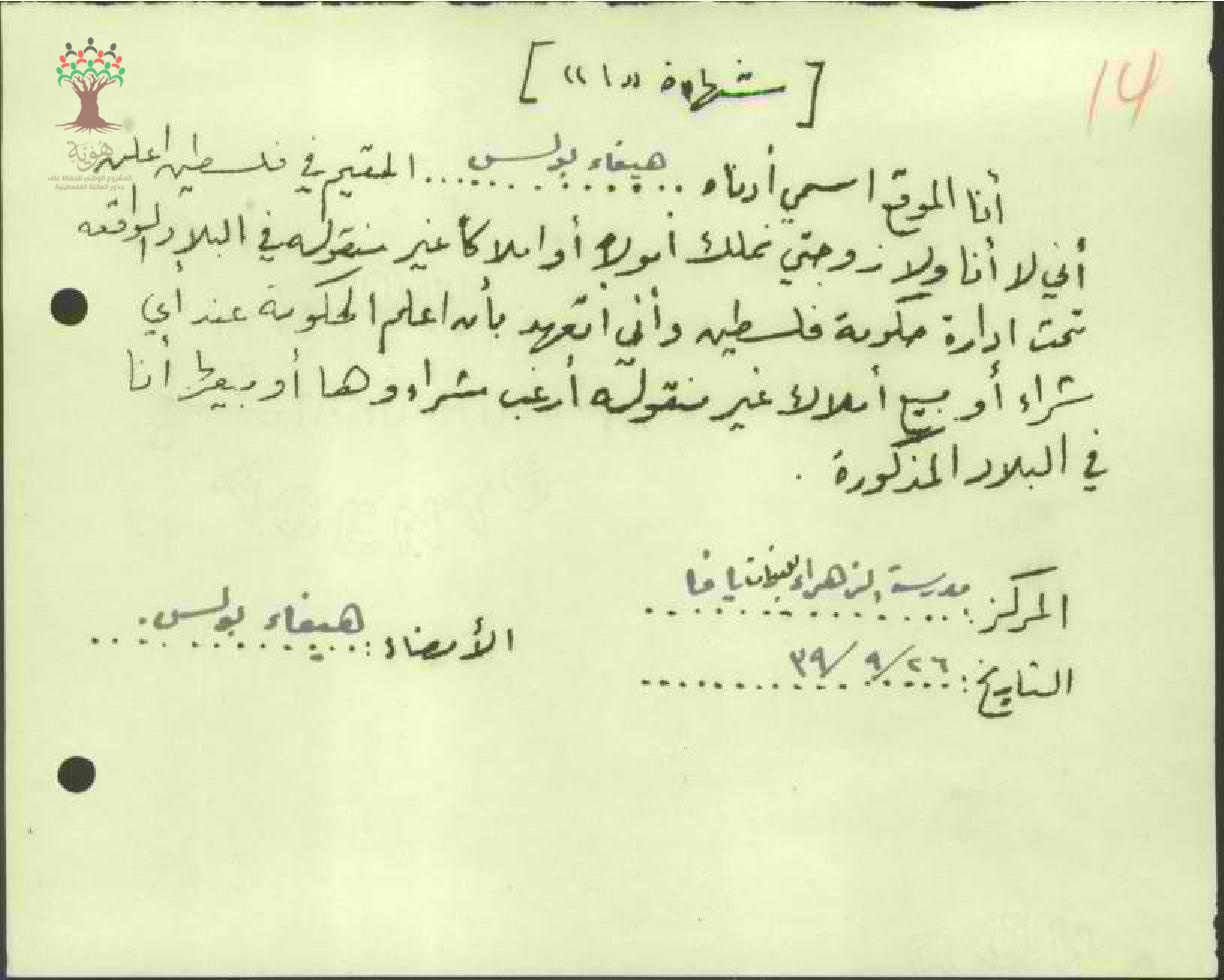 14
[ شهادة «١» ]
أنا الموقع اسمي أدناه .. هيفاء بولس ... المقيم في فلسطين اعلن
أني لا أنا ولا زوجتي نملك أموالا أو املاكا غير منقوله في البلاد الواقعه
تحت ادارة حكومة فلسطين وأني أتعهد بأن اعلم الحكومة عند أي
شراء أو بيع أملاك غير منقولة أرغب بشراءوها أو بيعها أنا
في البلاد المذكورة .
المركز: مدرسة الزهراء للبنات يافا
الأمضاء: هيفاء بولس.
التاريخ: ٢٦/ ٩/ ٣٩
هوية
المشروع الوطني للحفاظ على
جذور العائلة الفلسطينية